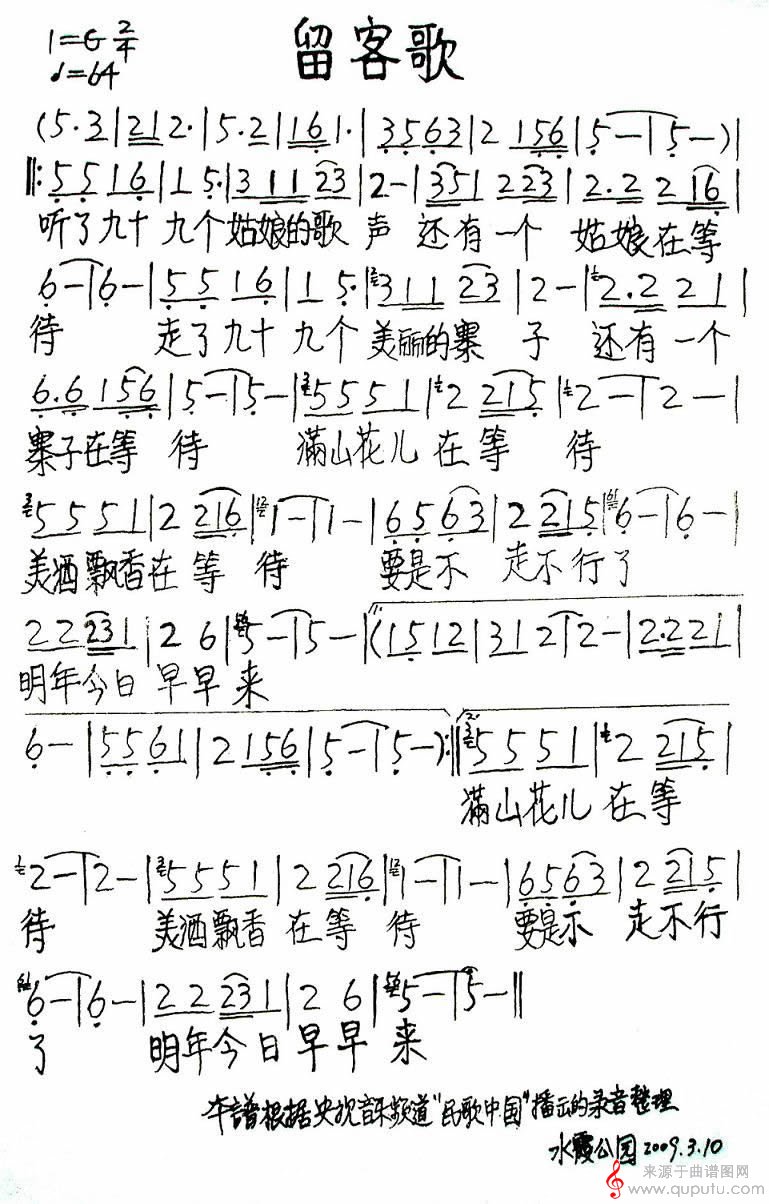 留客歌
1=G 2/4
♩=64
(5·3|21 2·|5·2|16 1·|3563|2 156|5—|5—)|
‖:5516|1 5·|3 11 23|2—|35 1 223|2·2 2 16|
听了九十九个姑娘的歌声 还有一个 姑娘在等
6—|6—|5516|1 5·|311 23|2—|2·2 21|
待 走了九十九个美丽的寨子 还有一个
6·6 156|5—|5—|5551|2 215|2—|2—|
寨子在等待 满山花儿在等待
5551|2 216|1—|1—|6563|2 215|6—|6—|
美酒飘香在等待 要是不走不行了
22 23 1|2 6|5—|5—|(1512|31 2|2—|2·2 21|
明年今日早早来
6—|5561|2 156|5—|5—):‖5551|2 215|
满山花儿在等
2—|2—|5551|2 216|1—|1—|6563|2 215|
待 美酒飘香在等待 要是不走不行
6—|6—|22 23 1|2 6|5—|5—‖
了 明年今日早早来
本谱根据央视音乐频道"民歌中国"播出的录音整理
水霞公园2009.3.10
来源于曲谱图网
www.quputu.com